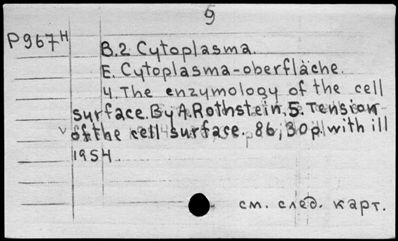 9
P967H
B.2 Cytoplasma.
E. Cytoplasma-oberfläche.
4. The enzymology of the cell
surface. By A. Rothstein. 5. Tension
of the cell surface. 86,30p. with ill
1954
см. след. карт.